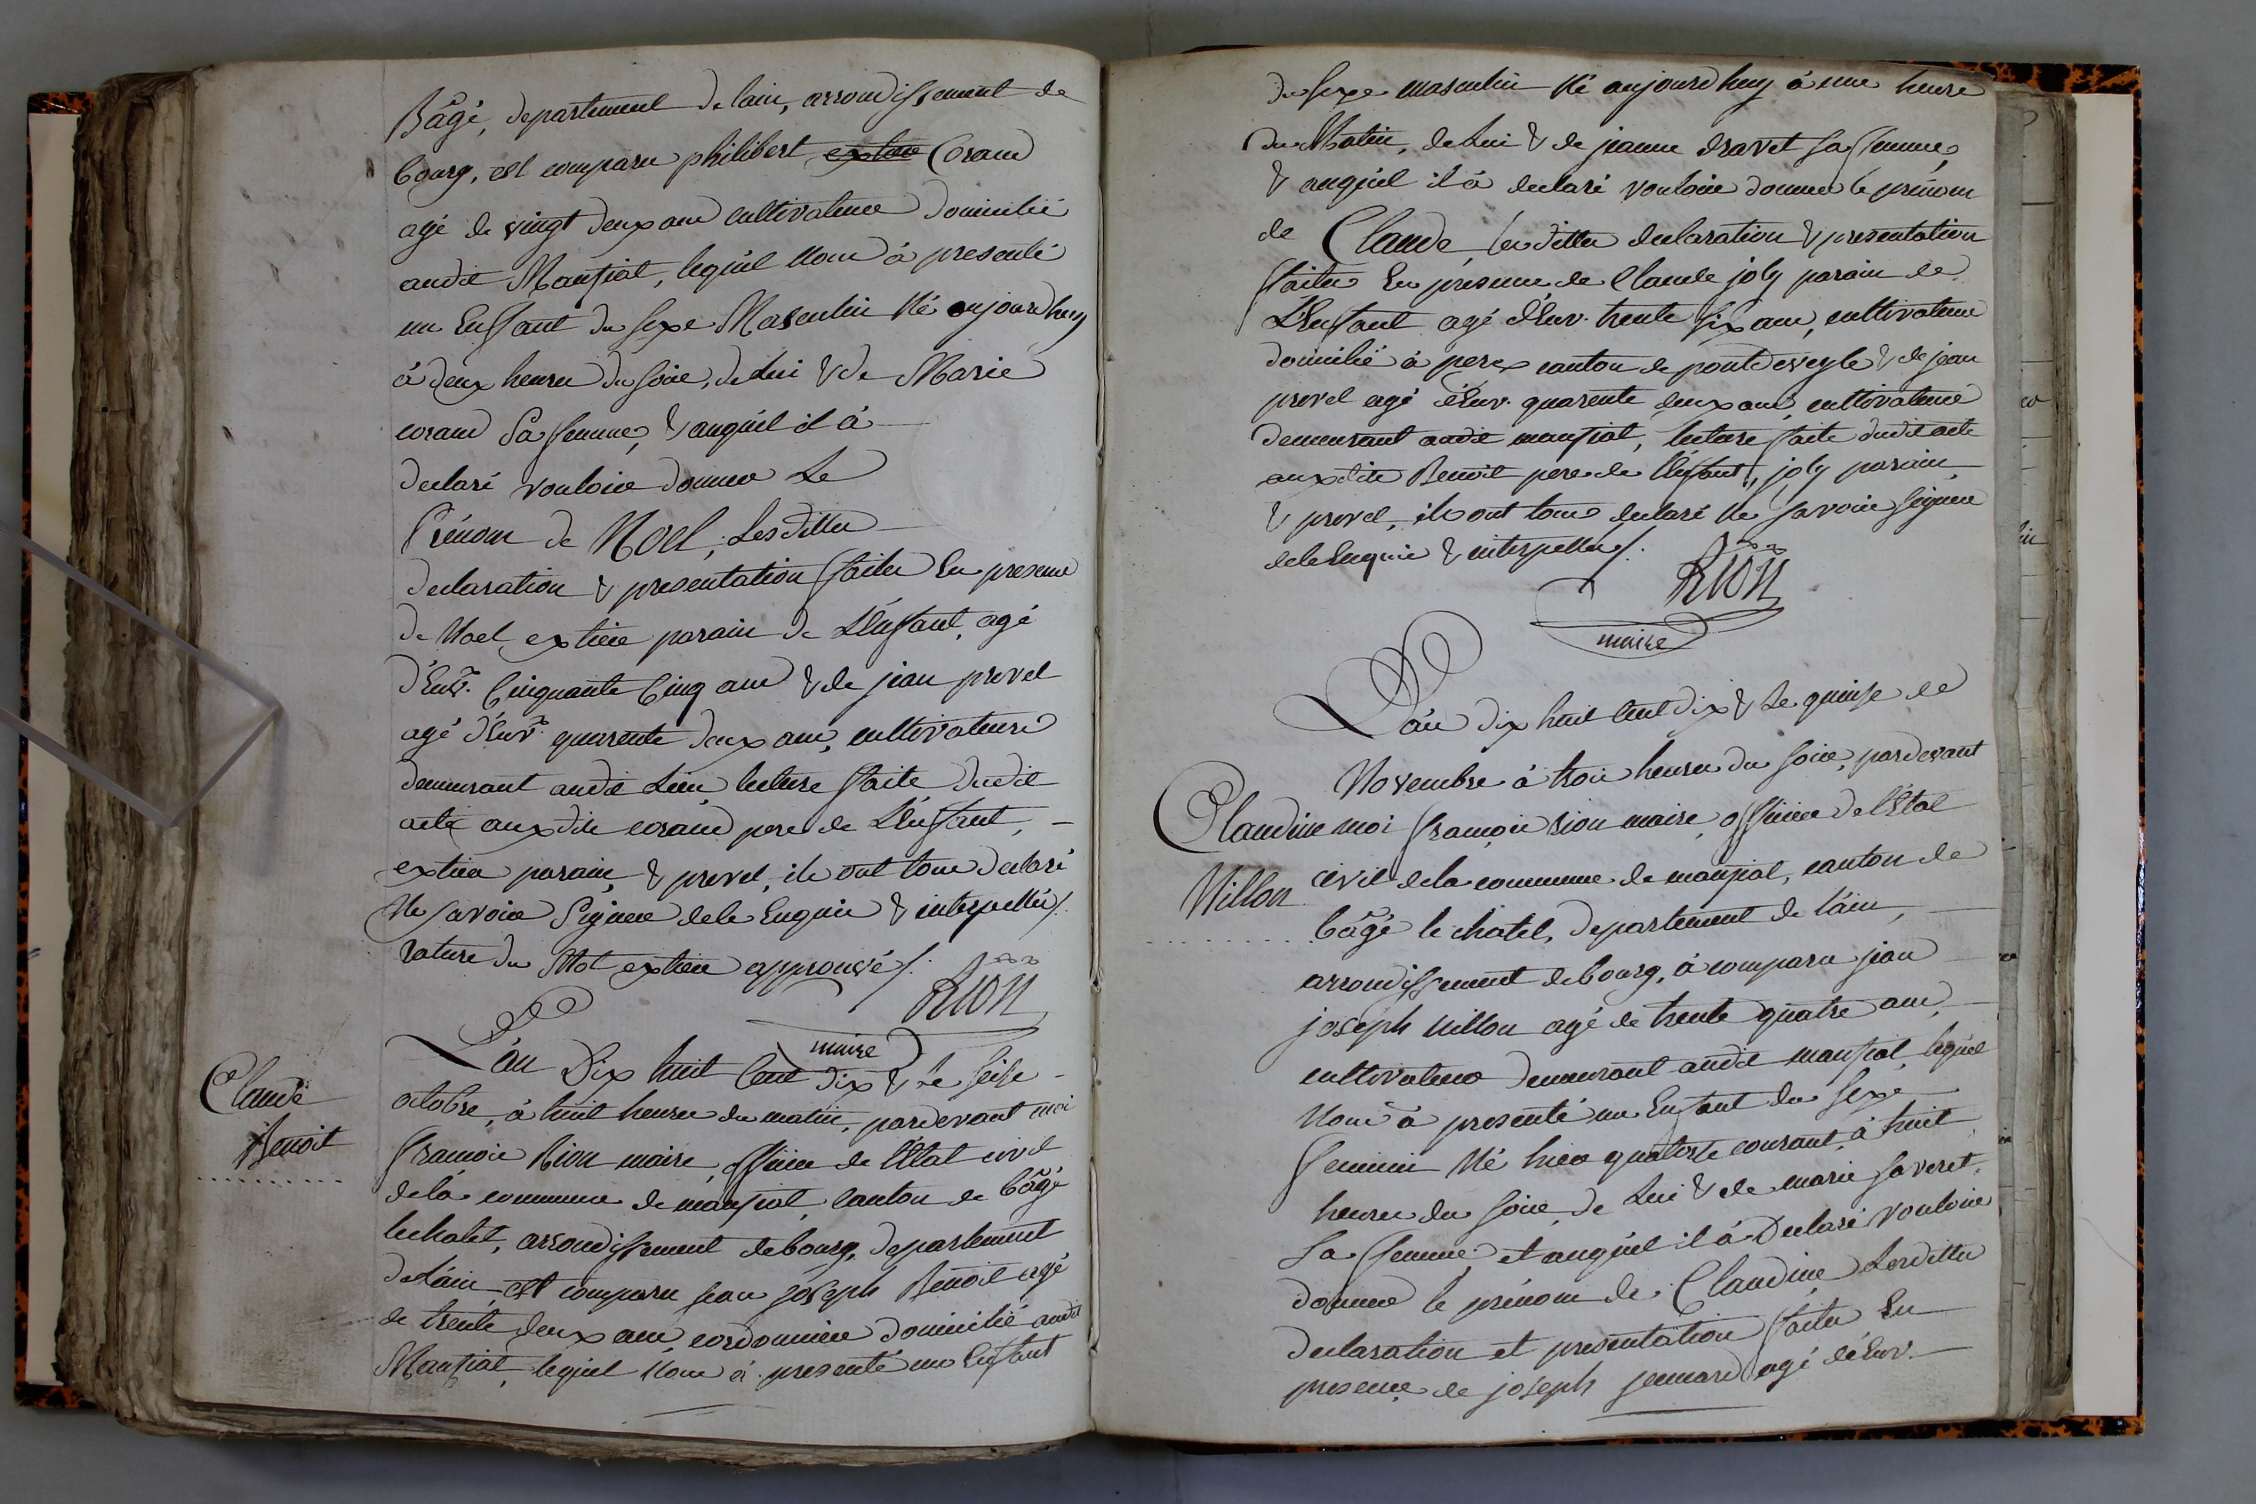 Bâgé, departement de lain, arrondissement de
bourg, est comparu philibert extier Corand
agé de vingt deux ans cultivateur domicilié
audit Manziat, lequel nous à presenté
un Enfant du sexe Masculin Né aujourdhuy
à deux heures du soir, de Lui & de Marie
corand Sa femme, & auquel il à
declaré vouloir donner Le
Prénom de Noel, Lesdittes
declaration & presentation faites En presence
de Noel extier parain de L'Enfant, agé
d'Envn. Cinquante Cinq ans & de jean prevel
agé d'Envn. quarente deux ans, cultivateurs
demeurant audit Lieu, lecture faite dudit
acte auxdits corand pere de L'Enfant,
extier parain, & prevel, ils ont tous declaré
Ne savoir Signer de ce Enquis & interpellés/.
rature du Mot extier approuvé/.
RION
maire
Claude
Benoit
L'àn Dix huit Cent dix & Le seize
octobre, à huit heures du matin, pardevant moi
françois Rion maire, officier de l'Etat civil
de la commune de manziat, canton de bâgé
lechatel, arrondissement de bourg, departement
de Lain, est comparu jean joseph Benoit agé
de trente deux ans, cordonnier domicilié audit
Manziat, lequel Nous à presenté un Enfant
du sexe masculin Né aujourdhuy à une heure
du Matin, de Lui & de jeanne dravet sa femme,
& auquel il à declaré vouloir donner le prénom
de Claude, lesdittes declaration & presentation
faites En presence de Claude joly parain de
L'Enfant agé d'Env. trente six ans, cultivateur
domicilié à perex canton de pontdeveyle & de jean
prevel agé d'Env. quarente deux ans, cultivateur
demeurant audit manziat, lecture faite dudit acte
auxdits Benoit pere de l'Enfant, joly parain
& prevel, ils ont tous declaré Ne savoir signer
de ce Enquis & interpellés/.
RION
maire
L'àn dix huit Cent dix & Le quinze de
Novembre à trois heures du soir, pardevant
Claudine moi françois rion maire, officier de l'Etat
Millon civil de la commune de manziat, canton de
bâgé le châtel, departement de lain,
arrondissement de bourg, à comparu jean
joseph millon agé de trente quatre ans,
cultivateur demeurant audit manziat, lequel
Nous à presenté un Enfant du sexe
feminin Né hier quatorze courant, à huit
heures du soir, de Lui & de marie faveret
Sa femme, et auquel il à Declaré vouloir
donner le prénom de Claudine, Lesdittes
declaration et presentation faites En
presence de joseph jennard agé d'Env.